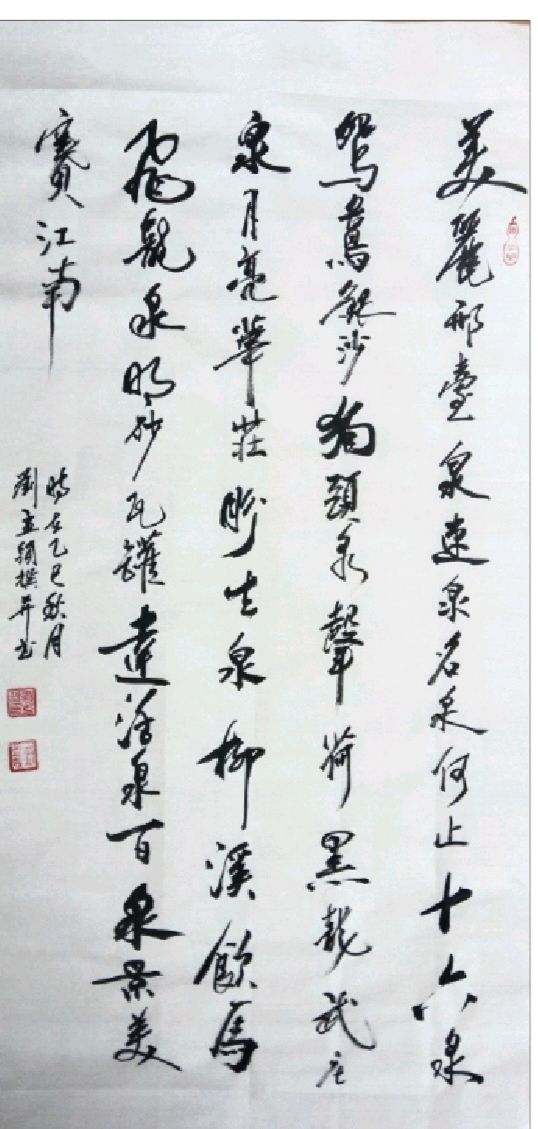 美麗邢臺泉連泉名泉何止十六泉
鴛鴦銀沙狗頭泉聲荷黑龍武庄
泉月亮華莊胗生泉柳溪飲馬
飛龍泉鳴砂瓦罐達活泉百泉景美
賽江南
時在乙巳秋月
劉立穎撰并书